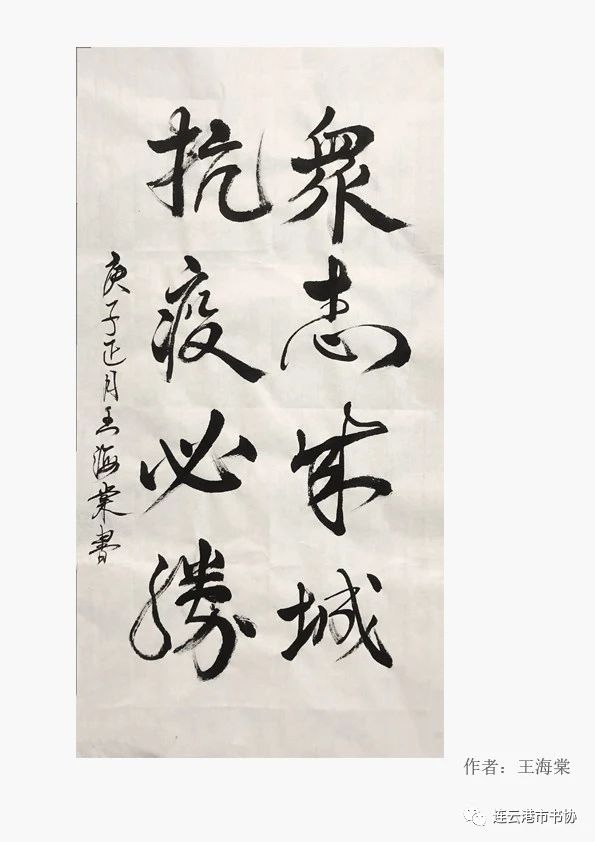 眾志成城
抗疫必勝
庚子正月王海棠書
作者：王海棠
连云港市书协